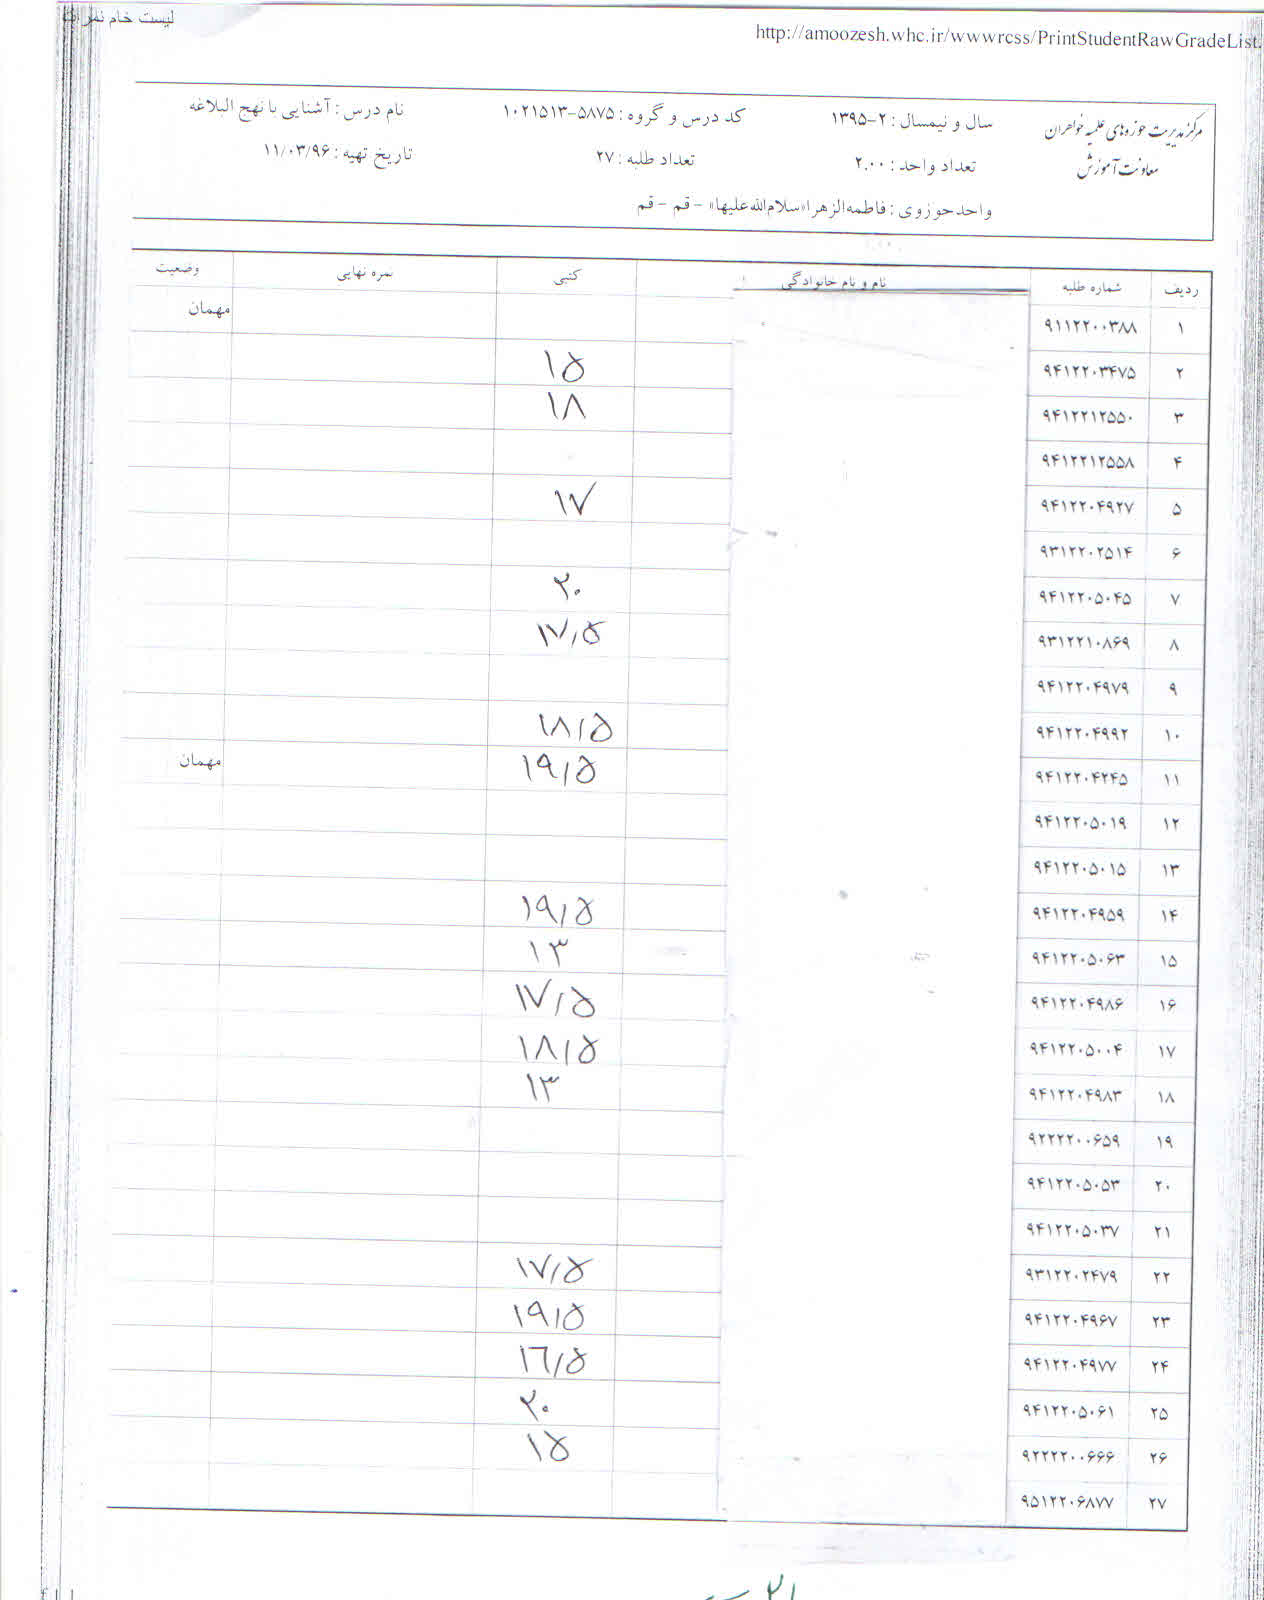 لیست خام نمرات
http://amoozesh.whc.ir/wwwrcss/PrintStudentRawGradeList.
مرکز مدیریت حوزه‌های علمیه خواهران سال و نیمسال : ۲-۱۳۹۵ کد درس و گروه : ۵۸۷۵-۱۰۲۱۵۱۳ نام درس : آشنایی با نهج البلاغه
معاونت آموزش تعداد واحد : ۲.۰۰ تعداد طلبه : ۲۷ تاریخ تهیه : ۱۱/۰۳/۹۶
واحد حوزوی : فاطمه‌الزهرا«سلام‌الله‌علیها» - قم - قم
ردیف شماره طلبه نام و نام خانوادگی کتبی نمره نهایی وضعیت
۱ ۹۱۱۲۲۰۰۳۸۸ مهمان
۲ ۹۴۱۲۲۰۳۴۷۵ ۱۵
۳ ۹۴۱۲۲۱۲۵۵۰ ۱۸
۴ ۹۴۱۲۲۱۲۵۵۸
۵ ۹۴۱۲۲۰۴۹۲۷ ۱۷
۶ ۹۳۱۲۲۰۲۵۱۴
۷ ۹۴۱۲۲۰۵۰۴۵ ۲۰
۸ ۹۳۱۲۲۱۰۸۶۹ ۱۷/۵
۹ ۹۴۱۲۲۰۴۹۷۹
۱۰ ۹۴۱۲۲۰۴۹۹۲ ۱۸/۵
۱۱ ۹۴۱۲۲۰۴۲۴۵ ۱۹/۵ مهمان
۱۲ ۹۴۱۲۲۰۵۰۱۹
۱۳ ۹۴۱۲۲۰۵۰۱۵
۱۴ ۹۴۱۲۲۰۴۹۵۹ ۱۹/۵
۱۵ ۹۴۱۲۲۰۵۰۶۳ ۱۳
۱۶ ۹۴۱۲۲۰۴۹۸۶ ۱۷/۵
۱۷ ۹۴۱۲۲۰۵۰۰۴ ۱۸/۵
۱۸ ۹۴۱۲۲۰۴۹۸۳ ۱۳
۱۹ ۹۲۲۲۲۰۰۶۵۹
۲۰ ۹۴۱۲۲۰۵۰۵۳
۲۱ ۹۴۱۲۲۰۵۰۳۷
۲۲ ۹۳۱۲۲۰۲۴۷۹ ۱۷/۵
۲۳ ۹۴۱۲۲۰۴۹۶۷ ۱۹/۵
۲۴ ۹۴۱۲۲۰۴۹۷۷ ۱۶/۵
۲۵ ۹۴۱۲۲۰۵۰۶۱ ۲۰
۲۶ ۹۲۲۲۲۰۰۶۶۶ ۱۵
۲۷ ۹۵۱۲۲۰۶۸۷۷